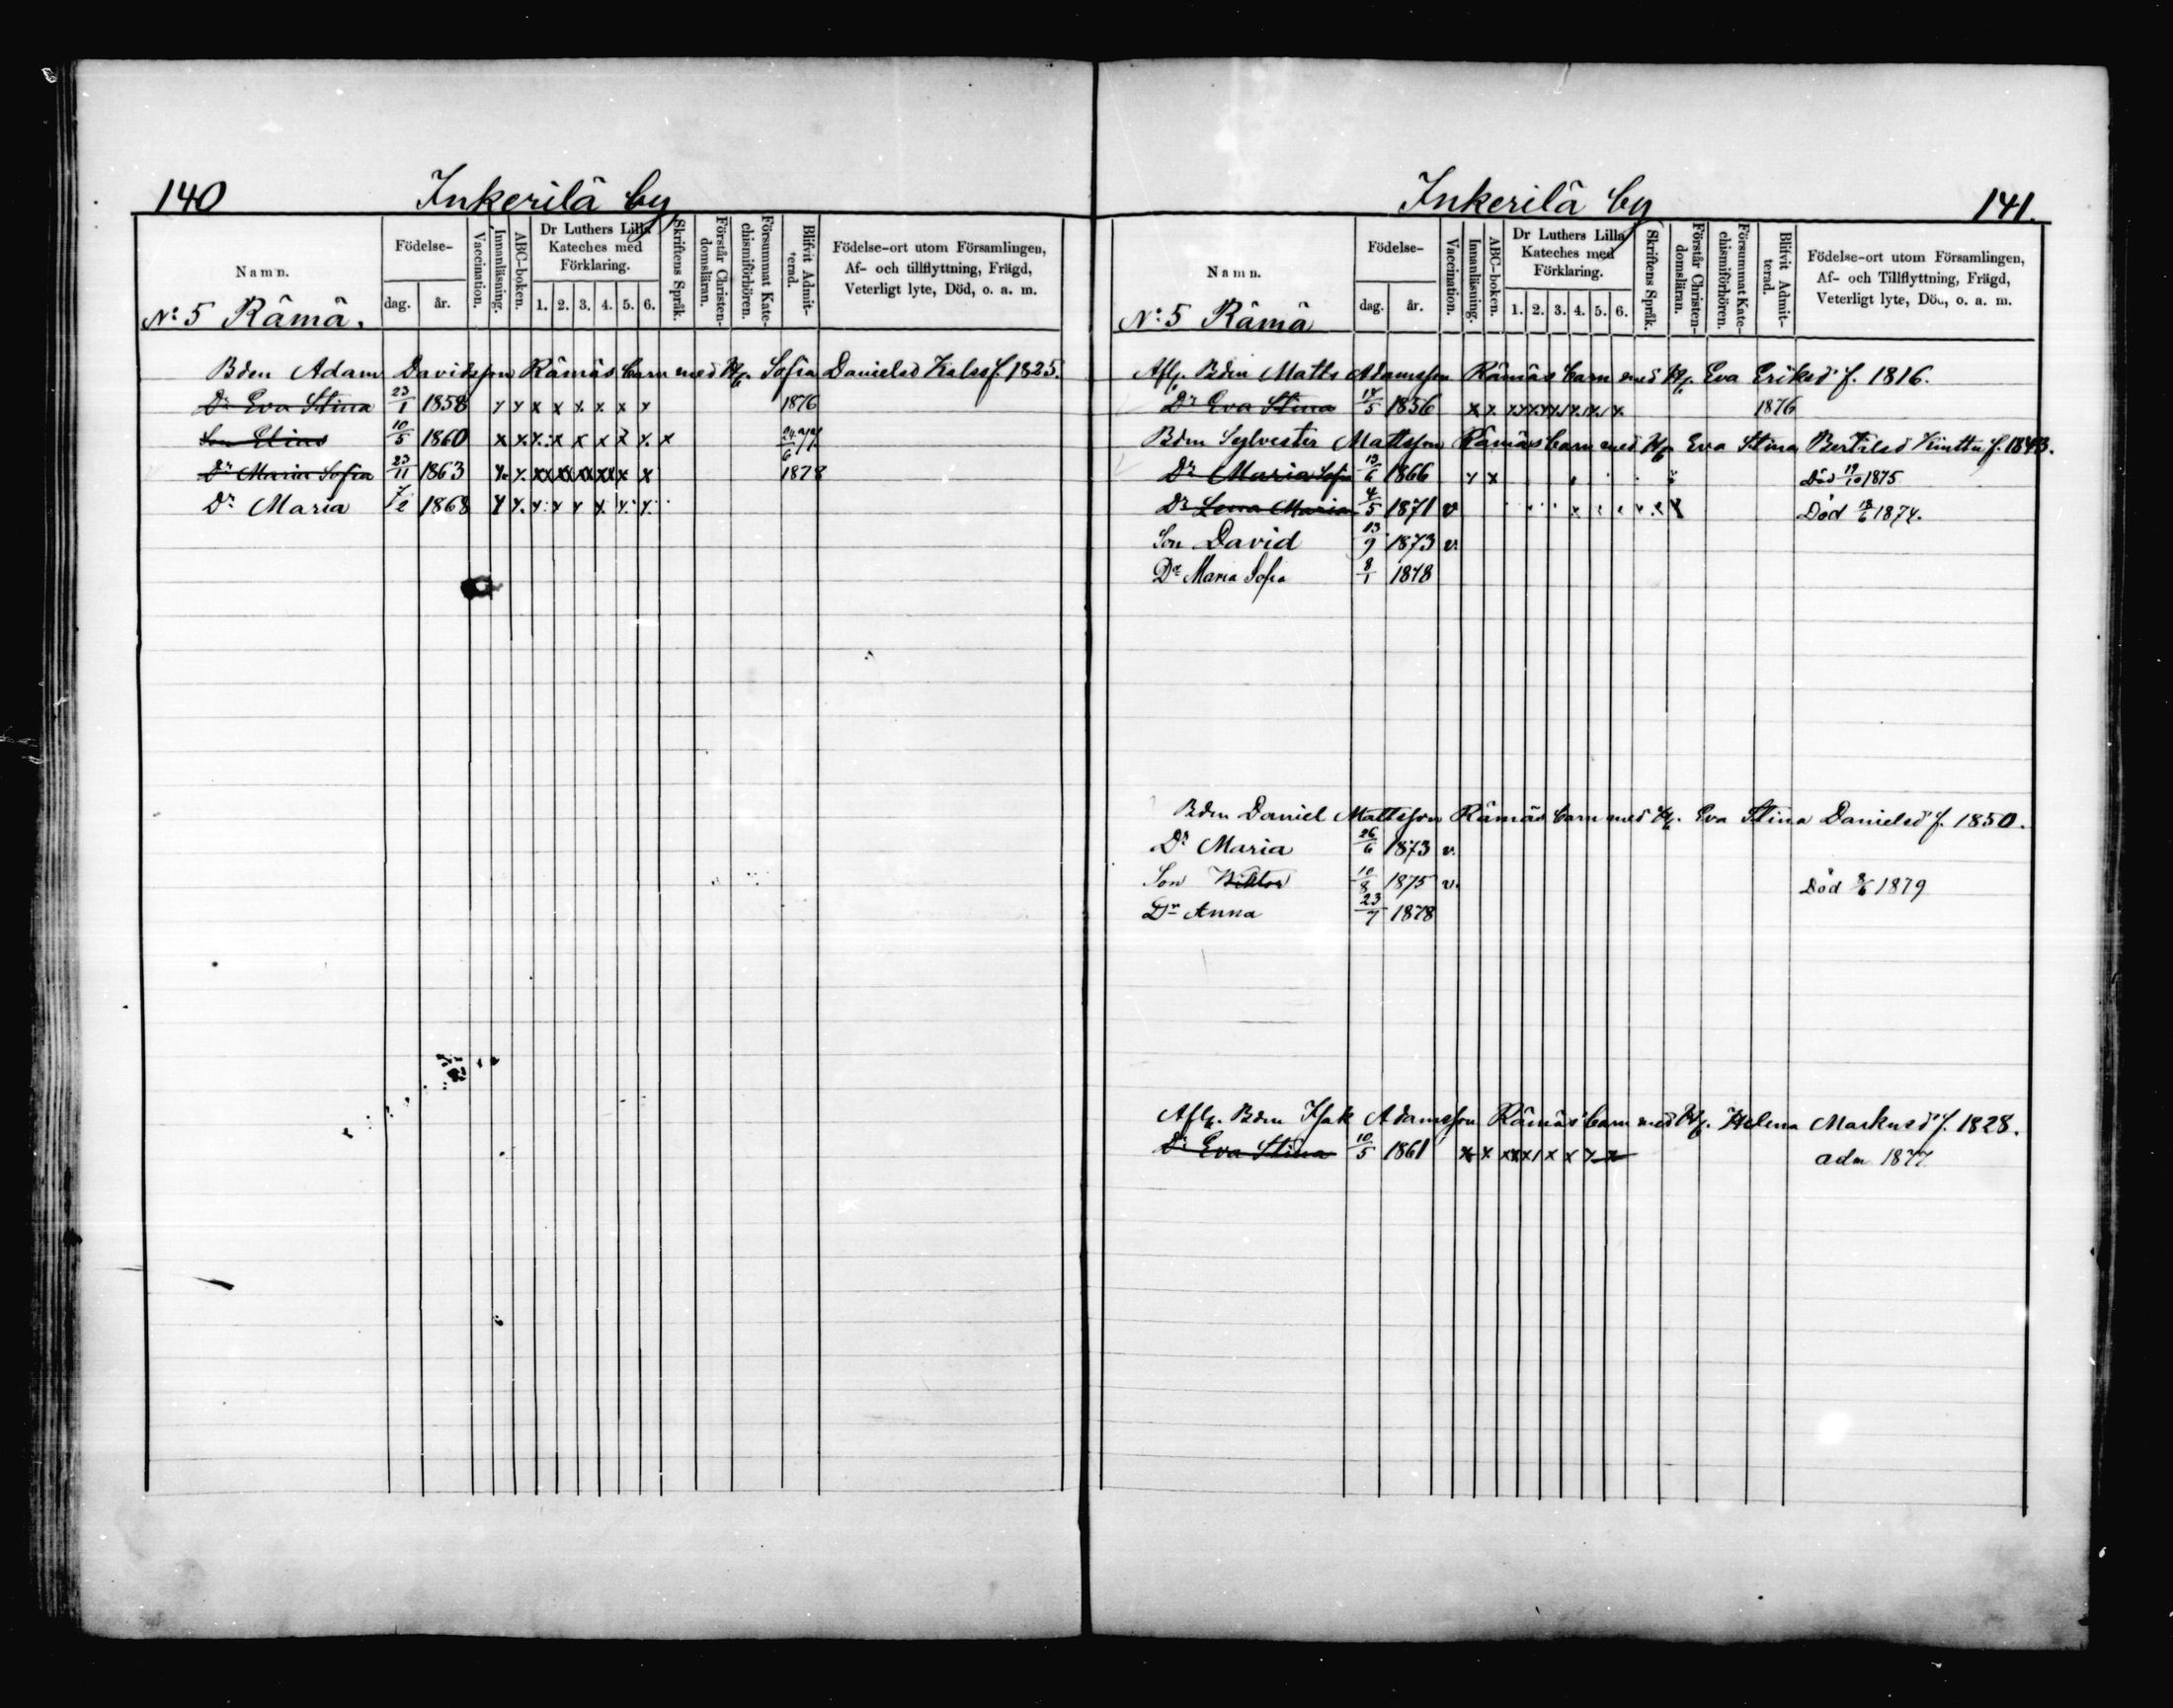 140 Inkerilä by
Namn.
Födelse-
dag. år.
Vaccination.
Innanläsning.
ABC-boken.
Dr Luthers Lilla Kateches med Förklaring.
1. 2. 3. 4. 5. 6.
Skriftens Språk.
Förstår Christendomsläran.
Försummat Katechismiförhören.
Blifvit Admitterad.
Födelse-ort utom Församlingen, Af- och tillflyttning, Frägd, Veterligt lyte, Död, o. a. m.
No 5 Rämä.
Bden Adam Davidsson Rämäs barn med H. Sofia Danielsd f. 1825.
Dr Eva Stina 23/1 1858 x x x x x x x x 1876
Son Elias 10/5 1860 x x x x x x x x x 24/6 77
Dr Maria Sofia 23/11 1863 x x xx xx xx xx x x 1878
Dr Maria 7/2 1868 x x x x x x x x
Inkerilä by 141.
Namn.
Födelse-
dag. år.
Vaccination.
Innanläsning.
ABC-boken.
Dr Luthers Lilla Kateches med Förklaring.
1. 2. 3. 4. 5. 6.
Skriftens Språk.
Förstår Christendomsläran.
Försummat Katechismiförhören.
Blifvit Admitterad.
Födelse-ort utom Församlingen, Af- och Tillflyttning, Frägd, Veterligt lyte, Död, o. a. m.
No 5 Rämä
Afl. Bden Matts Adamsson Rämäs barn med H. Eva Eriksd f. 1816.
Dr Eva Stina 14/5 1856 x x x x x x x x 1876
Bden Sylvester Mattsson Rämäs barn med H. Eva Stina Bertilsd f. 1843.
Dr Maria Sofia 13/6 1866 x x Död 19/10 1875
Dr Lena Maria 4/5 1871 v Död 18/6 1874.
Son David 13/9 1873 v.
Dr Maria Sofia 8/1 1878
Bden Daniel Mattsson Rämäs barn med H. Eva Stina Danielsd f. 1850.
Dr Maria 26/6 1873 v.
Son Viktor 10/8 1875 v. Död 8/6 1879
Dr Anna 23/7 1878
Afl. Bden Isak Adamsson Rämäs barn med H. Helena Markusd f. 1828.
Dr Eva Stina 10/5 1861 x x xx x1 x x x x adm 1877